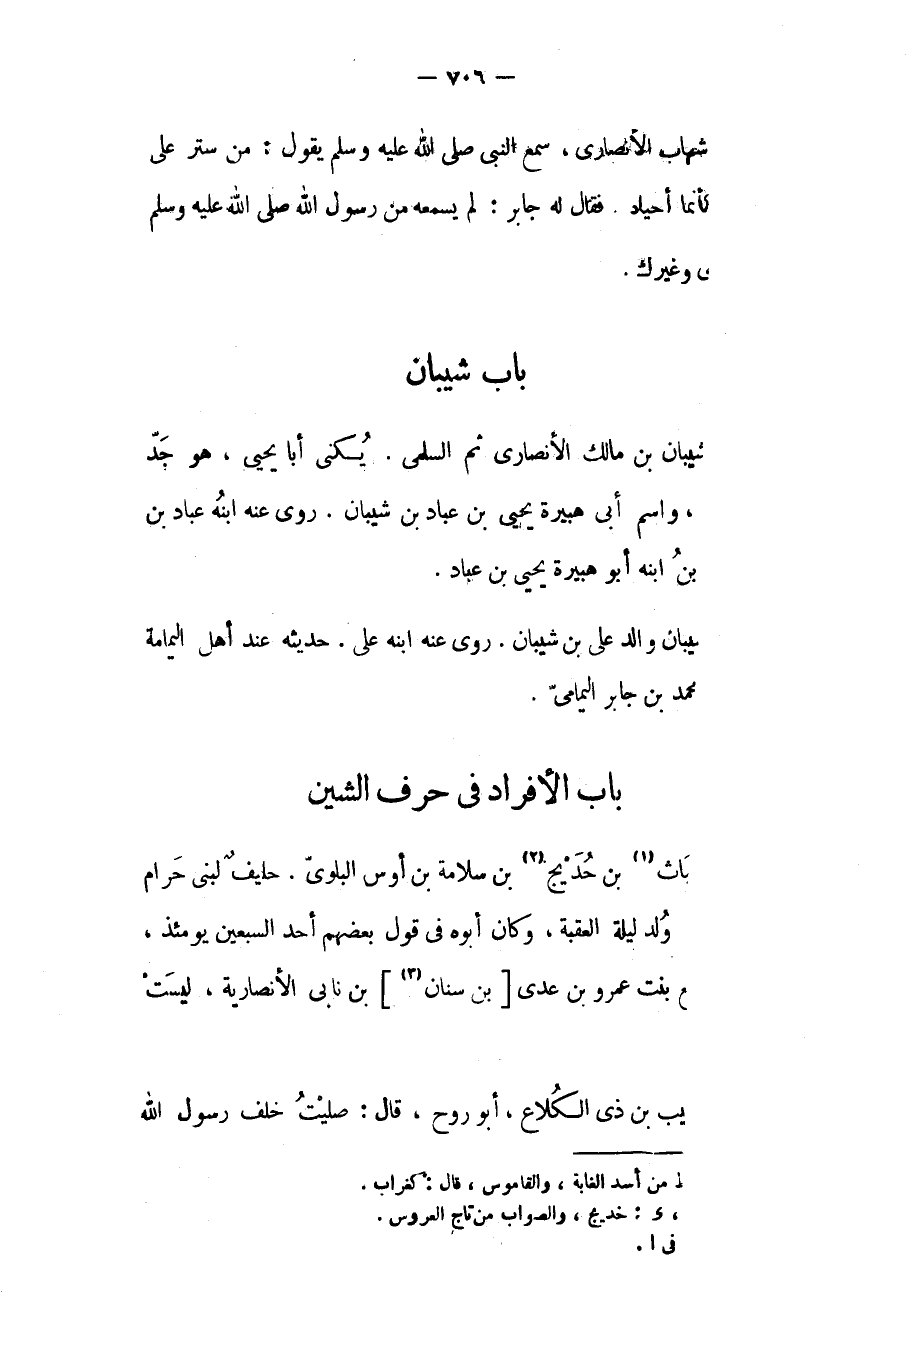 — ٧٠٦ —
شهاب الأنصارى، سمع النبى صلى الله عليه وسلم يقول : من ستر على
كأنما أحياد . فقال له جابر : لم يسمعه من رسول الله صلى الله عليه وسلم
ى وغيرك .
باب شيبان
شيبان بن مالك الأنصارى ثم السلمى . يُكنى أبا يحيى ، هو جَدّ
، واسم أبى هبيرة يحيى بن عباد بن شيبان . روى عنه ابنُه عباد بن
بنُ ابنه أبو هبيرة يحيى بن عباد .
يبان والد على بن شيبان . روى عنه ابنه على . حديثه عند أهل اليمامة
محمد بن جابر اليمامىّ .
باب الأفراد فى حرف الشين
بَاث (١) بن حُدَيْج (٢) بن سلامة بن أوس البلوىّ . حليفٌ لبنى حَرام
وُلد ليلة العقبة ، وكان أبوه فى قول بعضهم أحد السبعين يومئذ ،
م بنت عمرو بن عدى [ بن سنان (٣) ] بن نابى الأنصارية ، ليسَتْ
يب بن ذى الكُلاع ، أبو روح ، قال : صليْتُ خلف رسول الله
ـط من أسد الغابة ، والقاموس ، قال : كغراب .
، ى : خديج ، والصواب من تاج العروس .
فى ا .